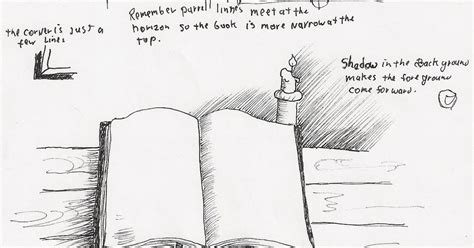 the corner is just a
few lines
Remember parrell linnes meet at the
horizon so the book is more narrow at the
top.
Shadow in the Back ground
makes the fore ground
come forward.